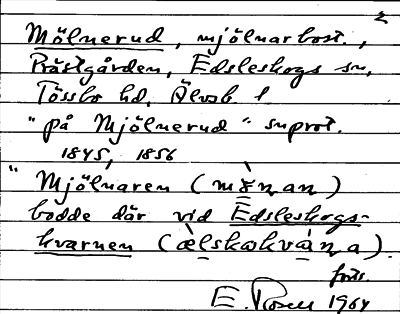 2
Mölnerud, mjölnarbost.,
Prästgården, Edsleskogs sn,
Tössbo hd, Älvsb. l
"på Mjölnerud" snprot.
1845, 1856
"Mjölnaren (
bodde där vid Edsleskogs-
kvarnen (
forts.
E. Rosell 1964